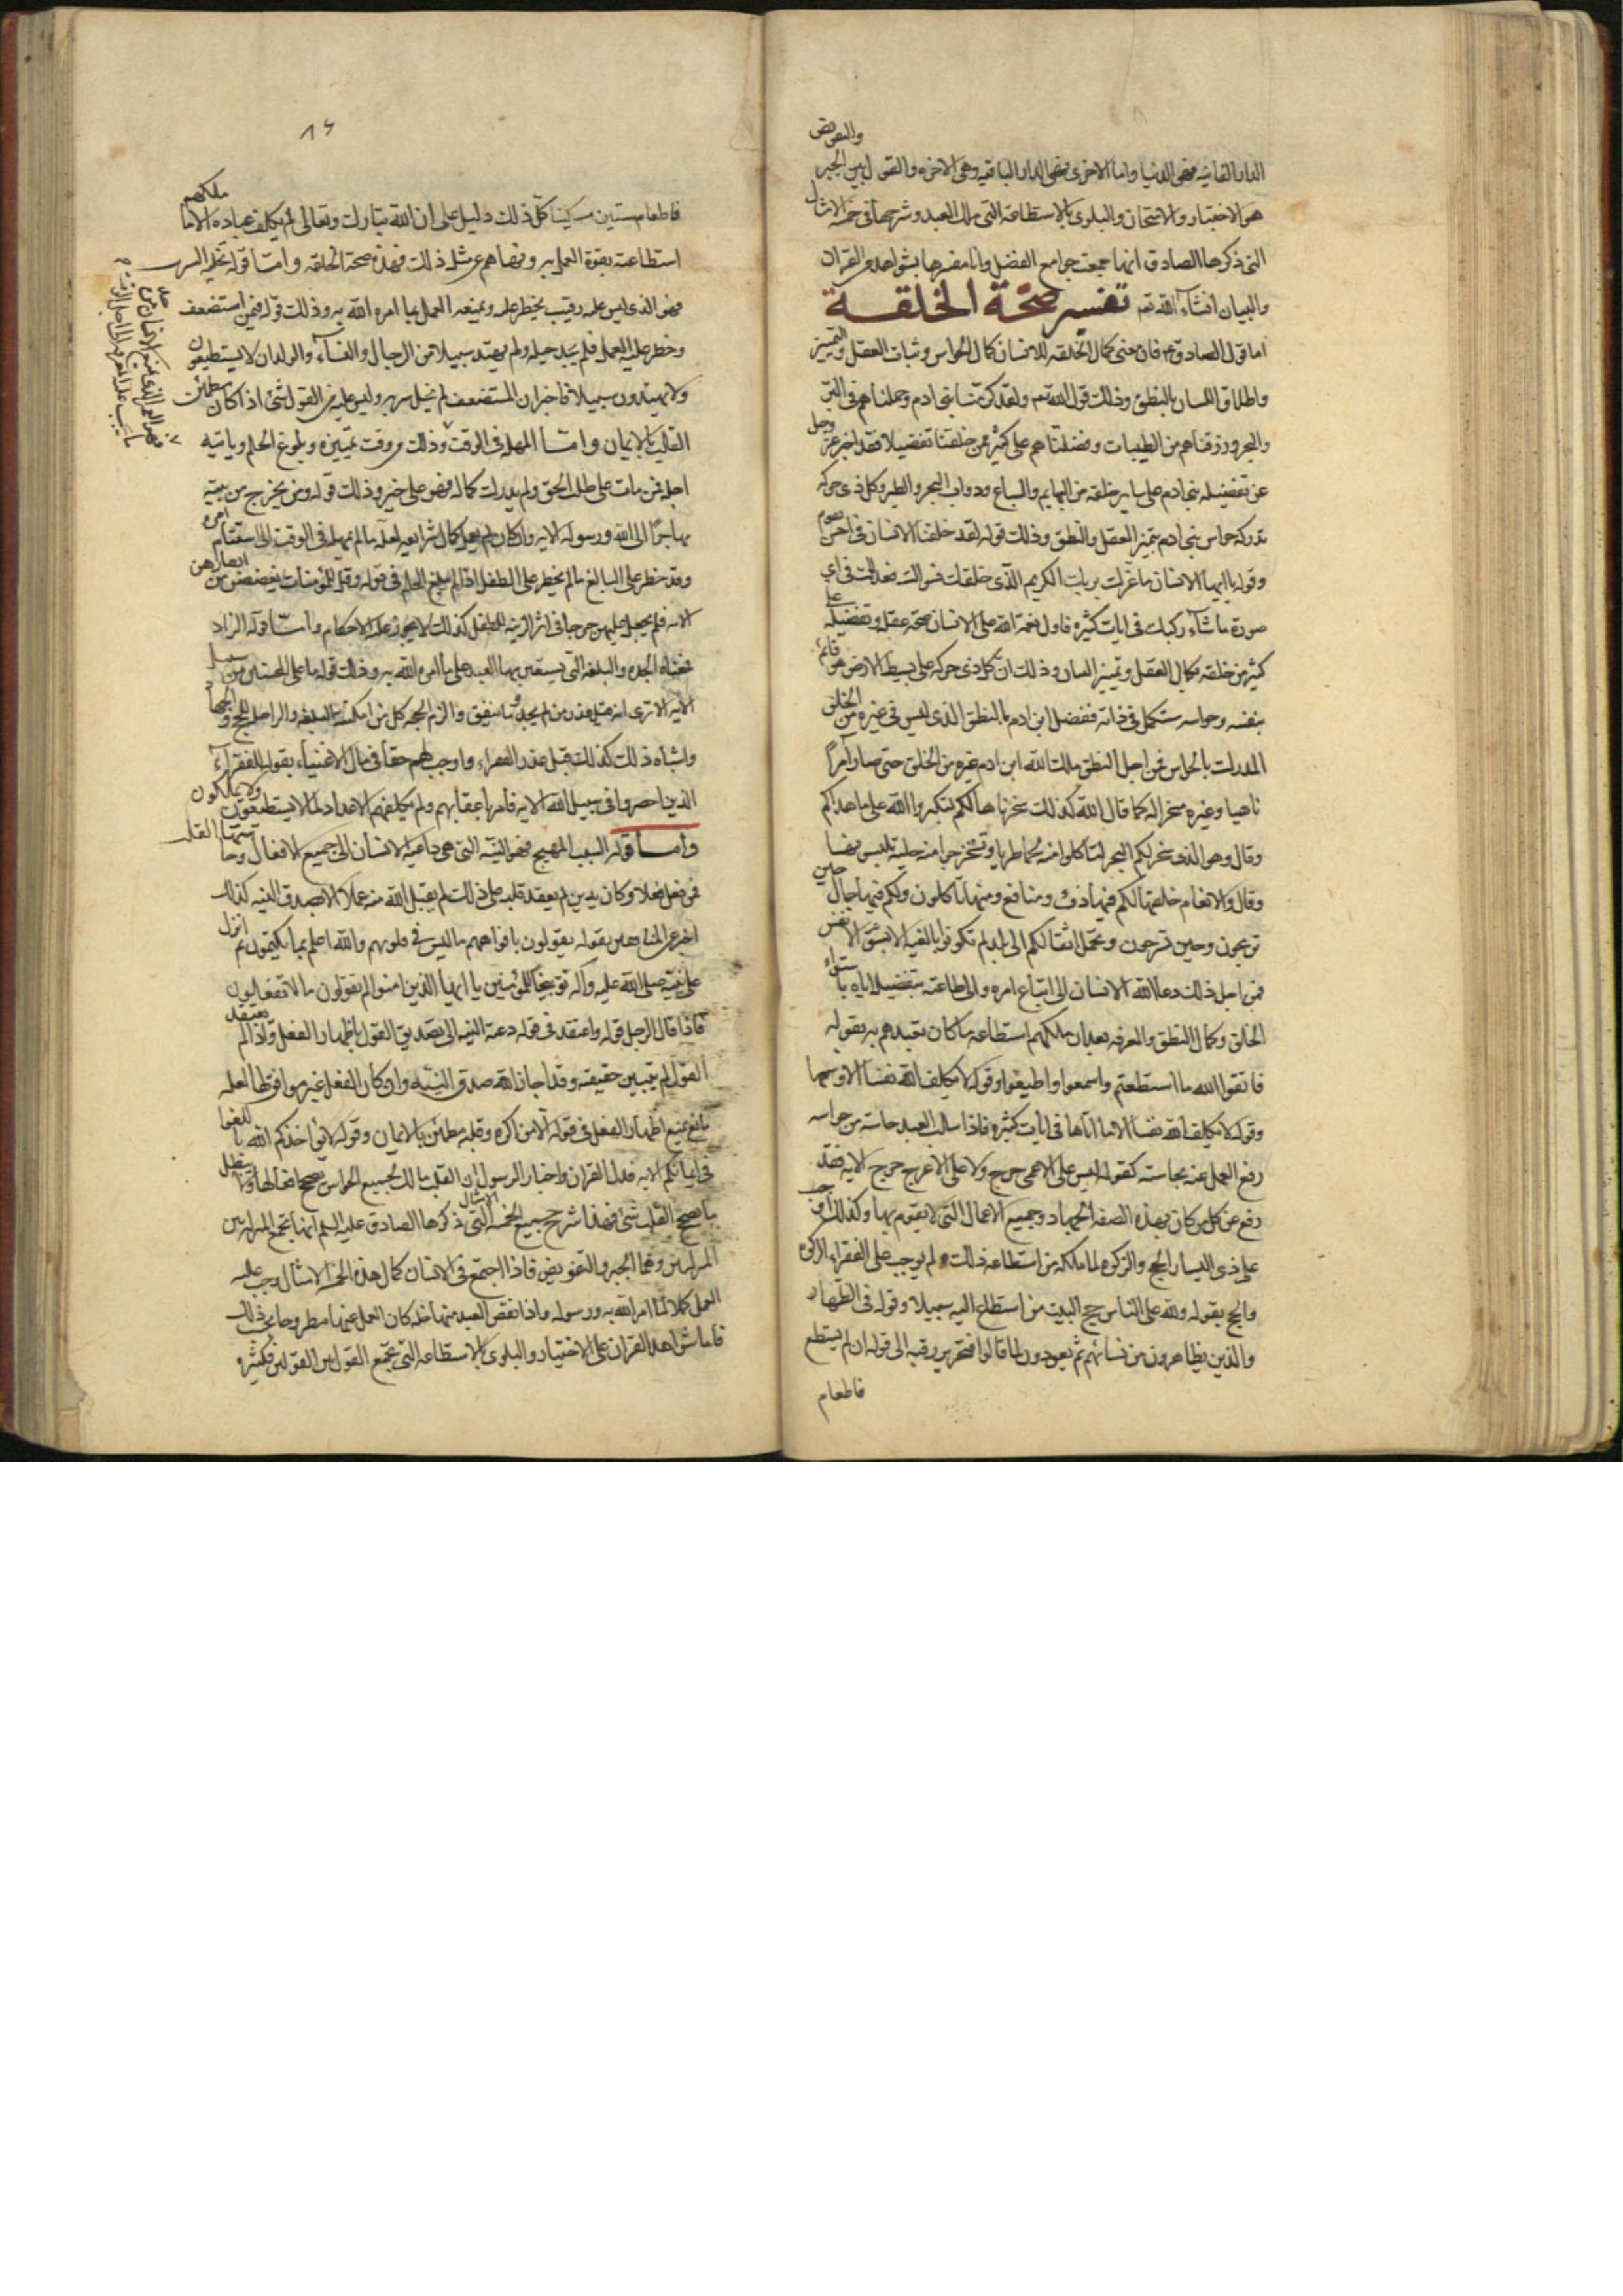 والتفويض
الدار الفانيه فهى الدنيا واما الاخرى فهى الدار الباقيه وهى الاخره والقول بين الجبر
هو الاختبار والامتحان والبلوى بالاستطاعة التى ملك العبد وشرحها فى خمسه الامثال
التى ذكرها الصادق انها جمعت جوامع الفضل وانا مفسرها بشواهد من القران
والبيان انشاء الله تعـ تفسير صحّة الخلقـة
اما قول الصادق ع فان معنى كمال الخلقه للانسان كمال الحواس وثبات العقل والتمييز
واطلاق اللسان بالنطق وذلك قول الله تعـ ولقد كرّمنا بنى ادم وحملناهم فى البرّ
والبحر ورزقناهم من الطيبات وفضلناهم على كثير ممن خلقنا تفضيلا فقد اخبر عزّ وجل
عن تفضيله بنى ادم على ساير خلقه من البهايم والسباع ودواب البحر والطير وكل ذى حركه
تدركه حواس بنى ادم بتميز العقل والنطق وذلك قوله لقد خلقنا الانسان فى احسن تقويم
وقوله يا ايها الانسان ما غرك بربك الكريم الذى خلقك فسواك فعدلك فى اى
صورة ما شاء ركبك فى ايات كثيره فاول نعمة الله على الانسان صحة عقله وتفضيله على
كثير من خلقه بكمال العقل وتمييز البيان وذلك ان كل ذى حركه على بسيط الارض هو قائم
بنفسه وحواسه مستكمل فى ذاته ففضل ابن ادم بالنطق الذى ليس فى غيره من الخلق
المدرك بالحواس فمن اجل النطق ملك الله ابن ادم غيره من الخلق حتى صار آمراً
ناهيا وغيره مسخر له كما قال الله كذلك سخرناها لكم لتكبروا الله على ما هداكم
وقال وهو الذى سخر لكم البحر لتاكلوا منه لحما طريا وتستخرجوا منه حلية تلبسونها
وقال والانعام خلقها لكم فيها دفء ومنافع ومنها تاكلون ولكم فيها جمال حين
تريحون وحين تسرحون وتحمل اثقالكم الى بلد لم تكونوا بالغيه الا بشق الانفس
فمن اجل ذلك دعا الله الانسان الى اتباع امره والى طاعته بتفضيله اياه باستواء
الخلق وكمال النطق والمعرفه بعد ان ملكهم استطاعة ما كان تعبدهم به بقوله
فاتقوا الله ما استطعتم واسمعوا واطيعوا وقوله لا يكلف الله نفسا الا وسعها
وقوله لا يكلف الله نفسا الا ما اتاها فى ايات كثيره فاذا سلب العبد حاسة من حواسه
رفع العمل عنه بحاسته كقوله ليس على الاعمى حرج ولا على الاعرج حرج الايه فقد
رفع عن كل من كان بهذه الصفه الجهاد وجميع الاعمال التى لا يقوم بها وكذلك اوجب
على ذى اليسار الحج والزكوه لما ملكه من استطاعة ذلك ولم يوجب على الفقراء الزكوة
والحج بقوله ولله على الناس حج البيت من استطاع اليه سبيلا وقوله فى الظهار
والذين يظاهرون من نسائهم ثم يعودون لما قالوا فتحرير رقبه الى قوله ان لم يستطع
فاطعام
٨٤
فاطعام ستين مسكينا كل ذلك دليل على ان الله تبارك وتعالى لم يكلف عباده الا ما ملكهم
استطاعته بقوة العمل به ونهاهم عن مثل ذلك فهذه صحة الخلقه وامّا قوله تخليه السرب
فهو الذى ليس عليه رقيب يحظر عليه ويمنعه العمل بما امره الله به وذلك قوله فيمن استضعف
وحظر عليه العمل فلم يجد حيله ولم يهتد سبيلا من الرجال والنساء والولدان لا يستطيعون
ولا يهتدون سبيلا فاخبر ان المستضعف لم يخل سربه وليس عليه من القول شئ اذا كان مطمئن
القلب بالايمان وامّا المهله فى الوقت وذلك من وقت تمييزه وبلوغ الحلم وياتيه
اجله فمن مات على طلب الحق ولم يدرك كماله فهو على خير وذلك قوله ومن يخرج من بيته
مهاجراً الى الله ورسوله الايه وان كان لم يعمل بكمال شرايعه لعلة ما لم يمهله فى الوقت الى استتمام امره
وقد حظر على البالغ ما لم يحظر على الطفل اذا لم يبلغ الحلم فى قوله وقل للمؤمنات يغضضن من ابصارهن
الايه فلم يجعل عليهن حرجا فى ابداء الزينه للطفل كذلك لا تجرى عليه الاحكام وامّا قوله الزاد
فمعناه الجده والبلغه التى يستعين بها العبد على ما امره الله به وذلك قوله ما على المحسنين من سبيل
الايه الا ترى انه قبل عذر من لم يجد ما ينفق والزم الحجه كل من امكنته البلغه والراحله للحج والجهاد
واشباه ذلك كذلك قبل عذر الفقراء واوجب لهم حقا فى مال الاغنياء بقوله للفقراء
الذين احصروا فى سبيل الله الايه فامر باعفائهم ولم يكلفهم الاعداد لما لا يستطيعون ولا يملكون
وامـا قوله السبب المهيج فهو النيّه التى هى داعيه الانسان الى جميع الافعال وحاستها القلب
فمن فعل فعلا وكان بدين لم يعقد قلبه على ذلك لم يقبل الله منه عملا الا بصدق النيه كذلك
اخبر عن المنافقين بقوله يقولون بافواههم ما ليس فى قلوبهم والله اعلم بما يكتمون ثم انزل
على نبيه صلى الله عليه وآله توبيخا للمؤمنين يا ايها الذين امنوا لم تقولون ما لا تفعلون
فاذا قال الرجل قوله واعتقد فى قوله دعته النيه الى تصديق القول باظهار الفعل واذا لم يعتقد
القول لم تتبين حقيقته وقد اجاز الله صدق النيه وان كان الفعل غير موافق لها لعله
مانع يمنع اظهار الفعل فى قوله الا من اكره وقلبه مطمئن بالايمان وقوله لا يؤاخذكم الله باللغو
فى ايمانكم الايه فدل القران واخبار الرسول ان القلب مالك لجميع الحواس يصحح افعالها ولا يبطل
ما يصحح القلب شئ فهذا شرح جميع الخمسه الامثال التى ذكرها الصادق عليه السلم انها تجمع المنزله بين
المنزلتين وهما الجبر والتفويض فاذا اجتمع فى الانسان كمال هذه الخمسه الامثال وجب عليه
العمل كملا لما امر الله به ورسوله واذا نقص العبد منها خله كان العمل عنها مطروحا بحسب ذلك
فاما شواهد القران على الاختبار والبلوى بالاستطاعه التى تجمع القول بين القولين فكثيره